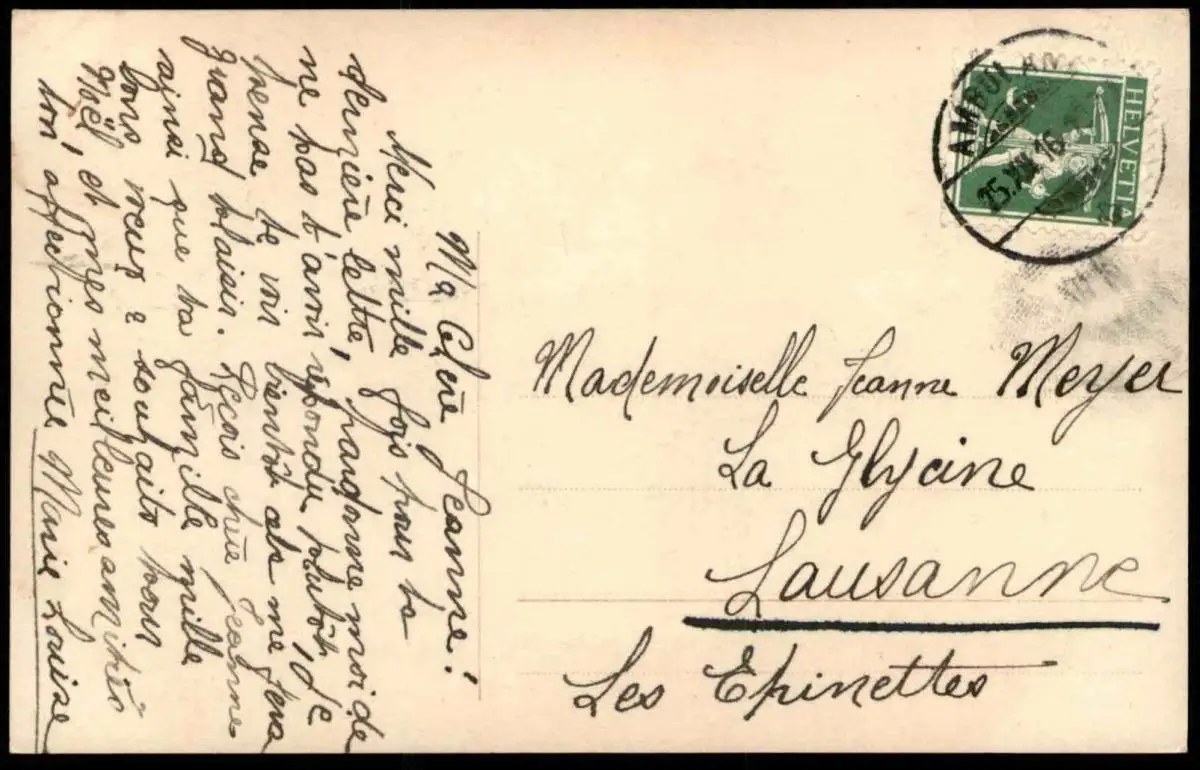 Ma Chère Jeanne!
Merci mille fois pour ta
dernière lettre, pardonne moi de
ne pas t'avoir repondu plutôt, Je
pense te voir bientôt cela me fera
grand plaisir. Reçois chère Jeanne
ainsi que ta famille mille
bons vœux & souhaits pour
Noël et mes meilleures amitiés
ton affectionnée Marie Louise
HELVETIA
25.XII.16
Mademoiselle Jeanne Meyer
La Glycine
Lausanne
Les Epinettes